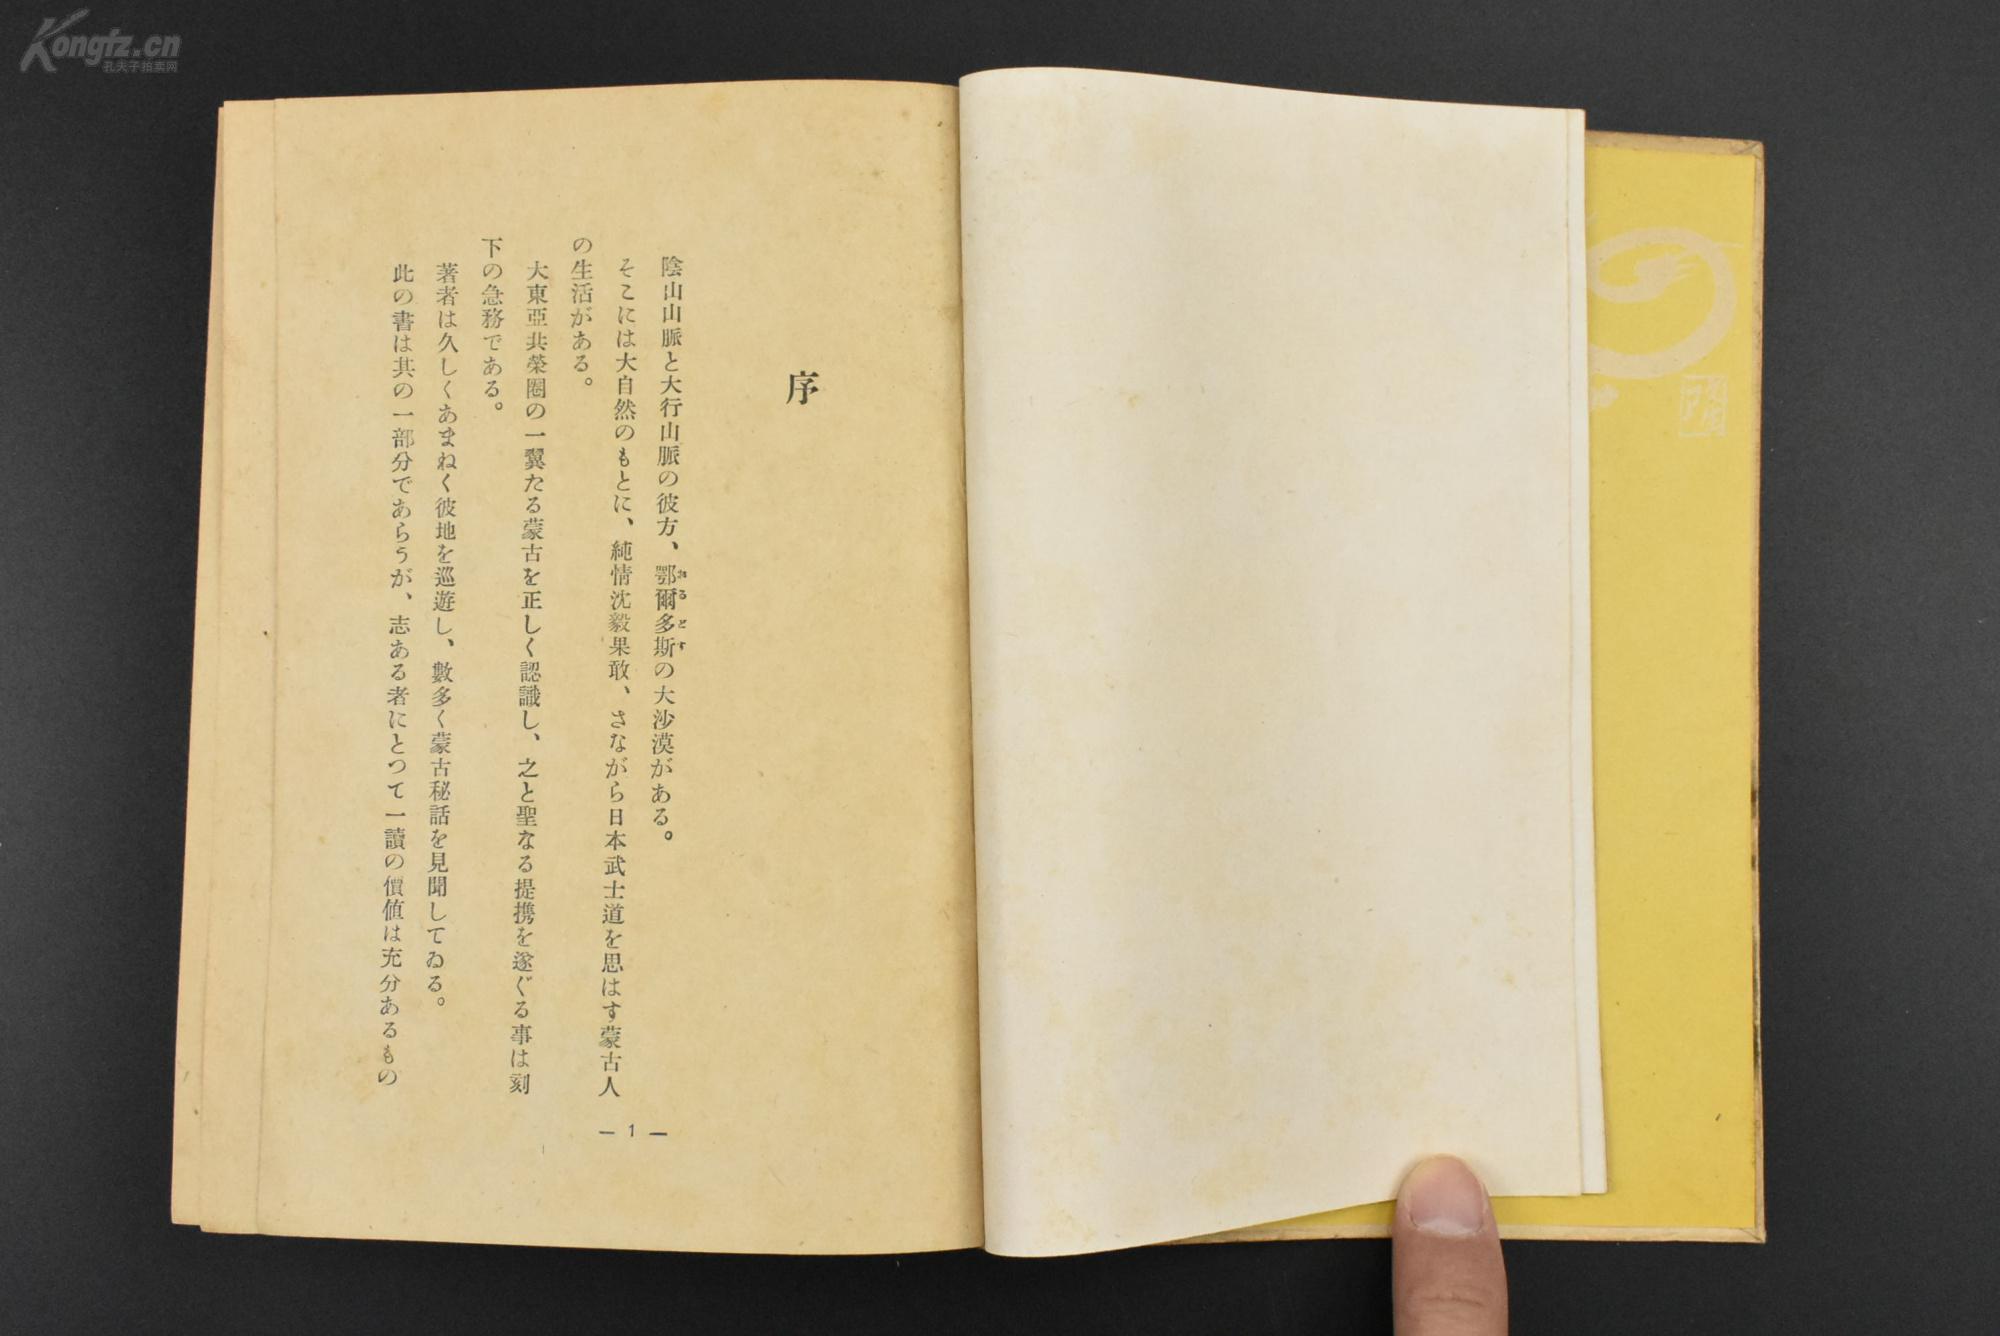 Kongfz.cn
孔夫子拍卖网
序
陰山山脈と大行山脈の彼方、鄂爾多斯の大沙漠がある。
おるどす
そこには大自然のもとに、純情沈毅果敢、さながら日本武士道を思はす蒙古人
の生活がある。
大東亞共榮圏の一翼たる蒙古を正しく認識し、之と聖なる提携を遂ぐる事は刻
下の急務である。
著者は久しくあまねく彼地を巡遊し、數多く蒙古秘話を見聞してゐる。
此の書は其の一部分であらうが、志ある者にとつて一讀の價値は充分あるもの
— 1 —